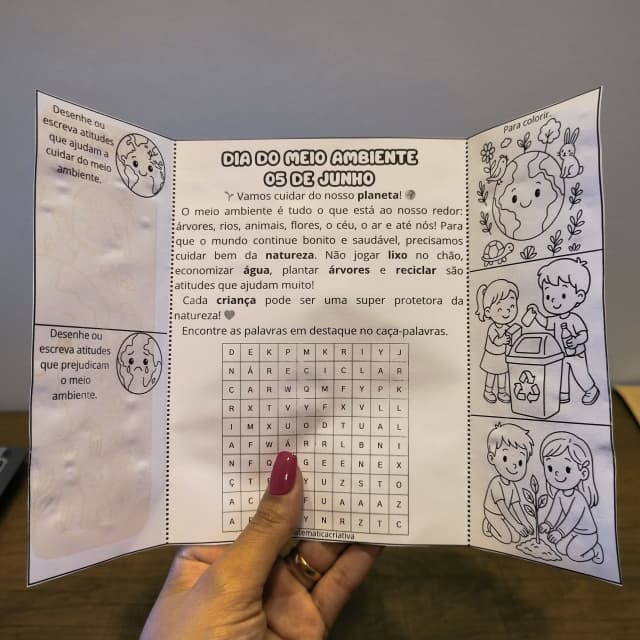 Desenhe ou
escreva atitudes
que ajudam a
cuidar do meio
ambiente.
Desenhe ou
escreva atitudes
que prejudicam
o meio
ambiente.
DIA DO MEIO AMBIENTE
05 DE JUNHO
Vamos cuidar do nosso planeta!
O meio ambiente é tudo o que está ao nosso redor:
árvores, rios, animais, flores, o céu, o ar e até nós! Para
que o mundo continue bonito e saudável, precisamos
cuidar bem da natureza. Não jogar lixo no chão,
economizar água, plantar árvores e reciclar são
atitudes que ajudam muito!
Cada criança pode ser uma super protetora da
natureza!
Encontre as palavras em destaque no caça-palavras.
D E K P M K R I Y J
N Á R E C I C L A R
C A R W Q M F Y P K
R X T V Y F X V L L
I M X U O D T U A L
A F W Á R R L B N I
N F G E E N E X
Ç T Y U Z S T O
A C F U A A A Z
A Y N R Z T C
atematicacriativa
Para colorir.